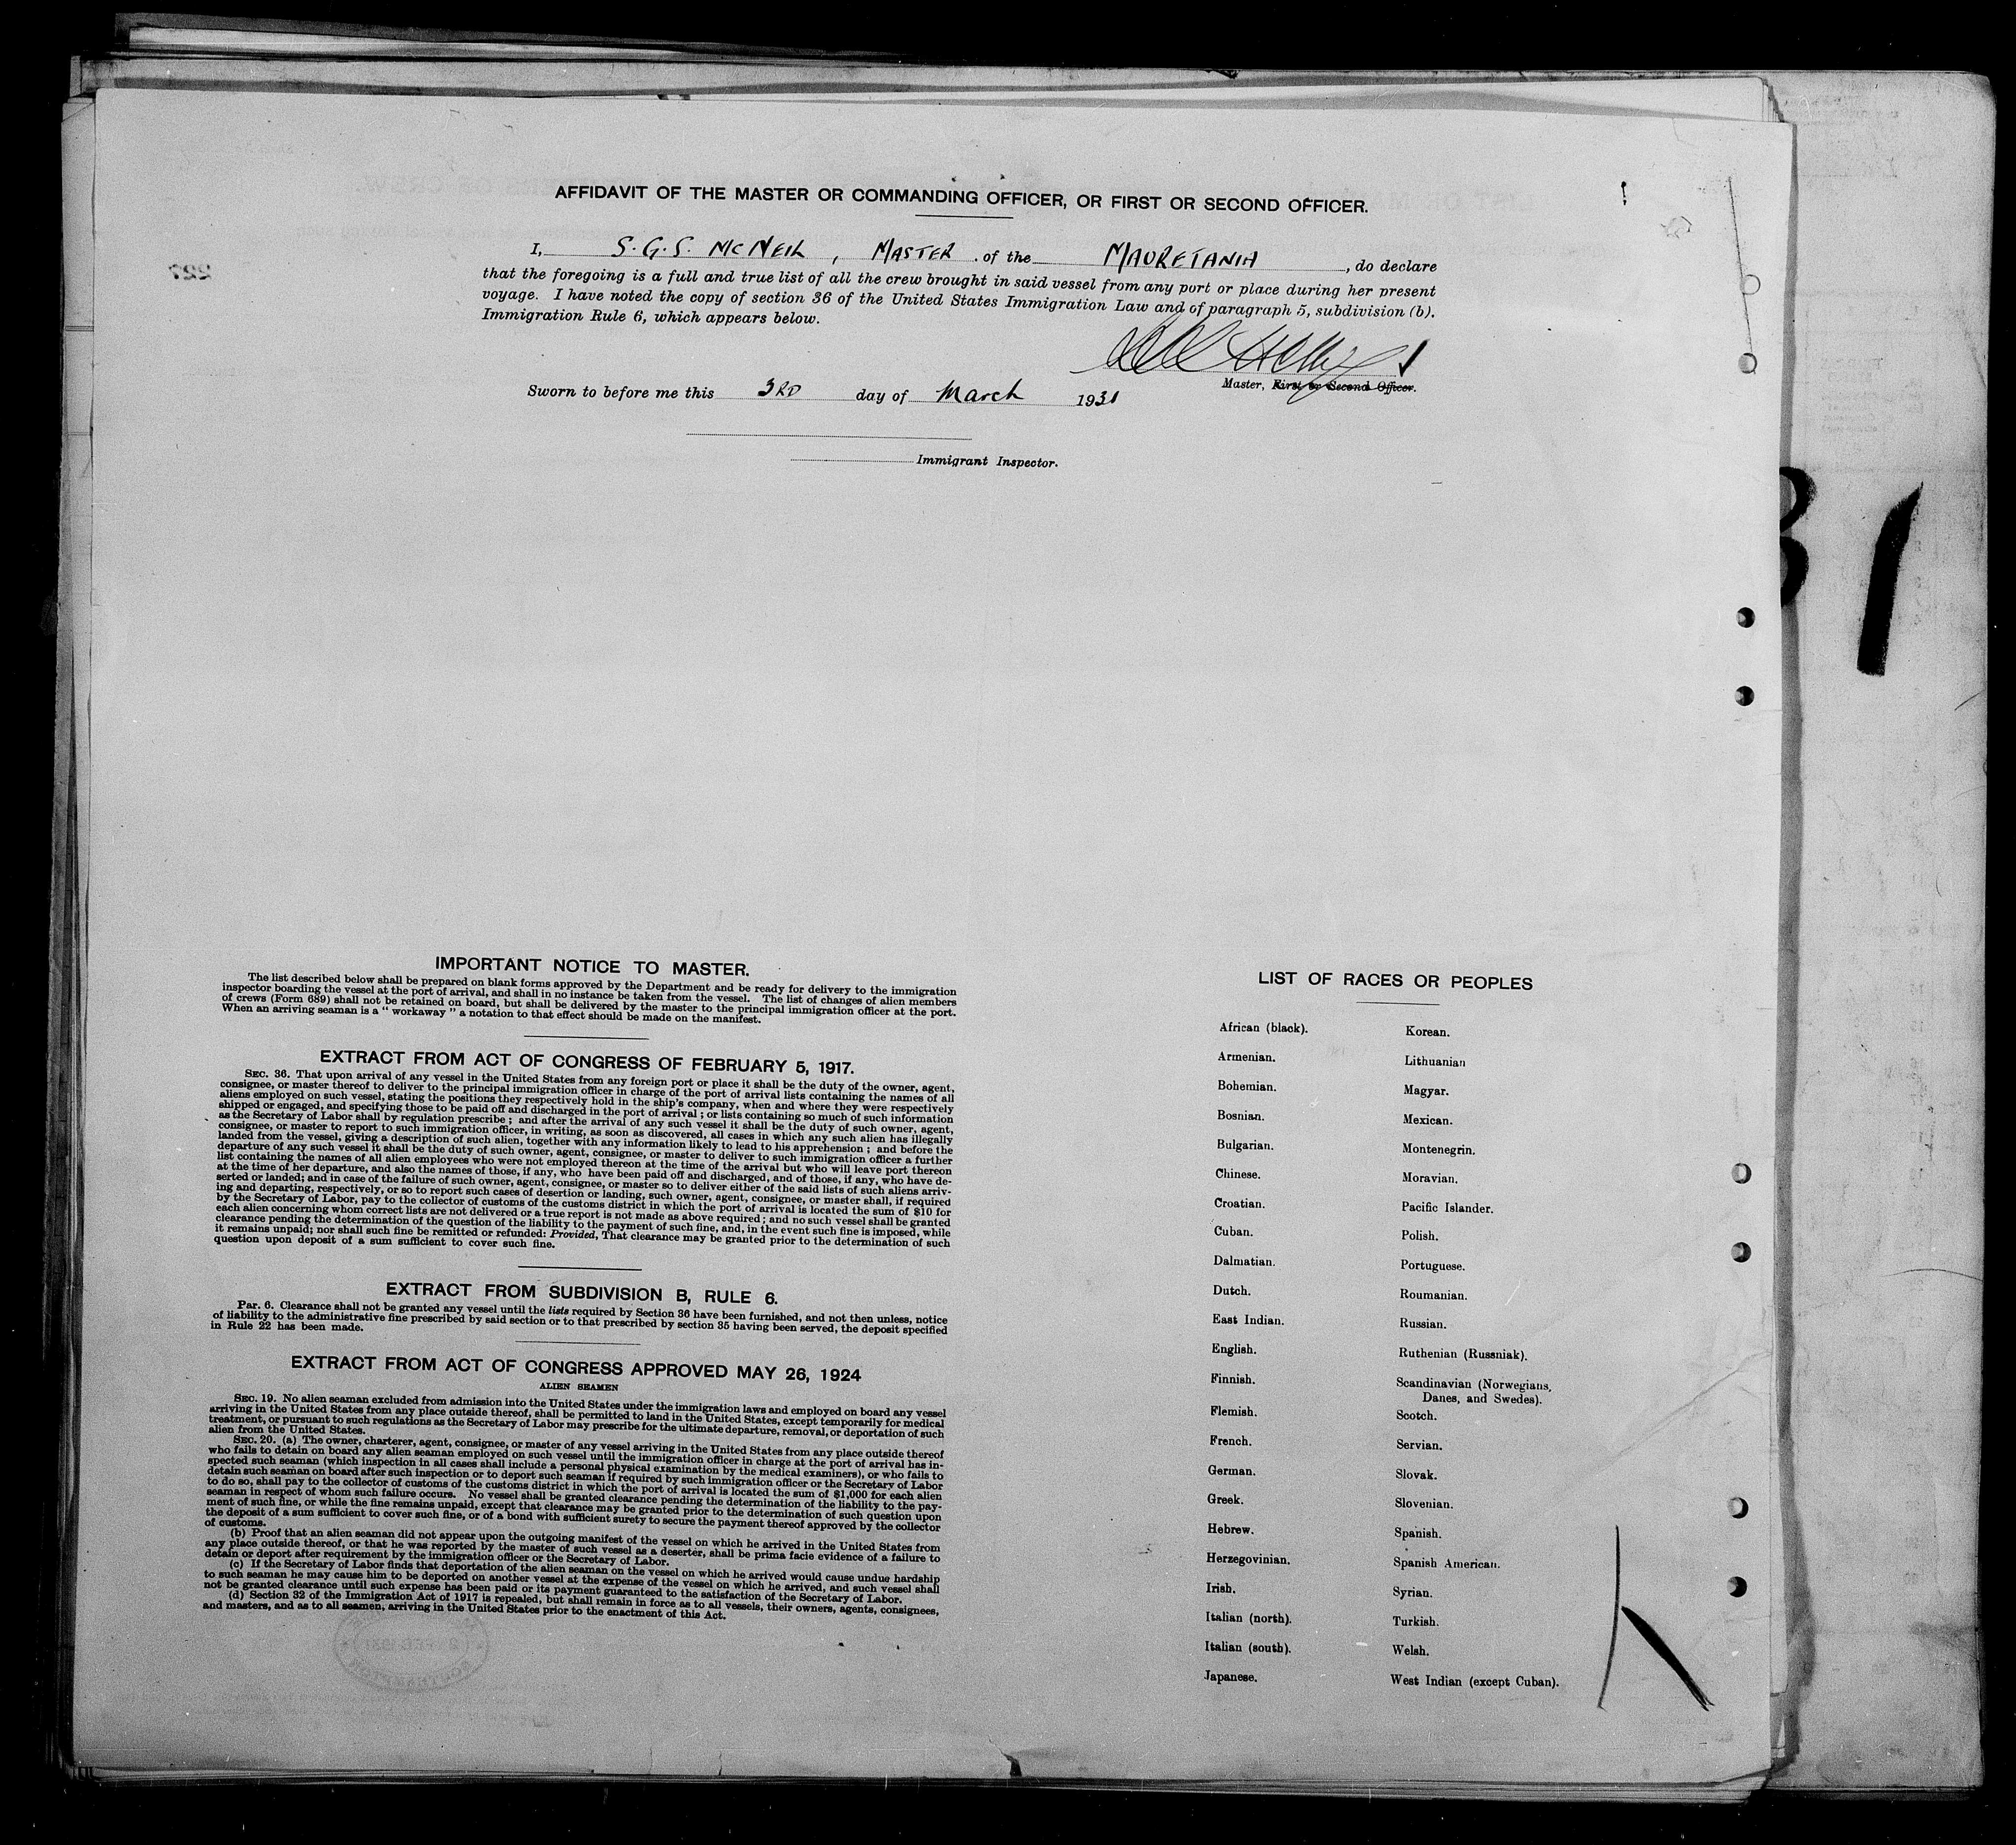 AFFIDAVIT OF THE MASTER OR COMMANDING OFFICER, OR FIRST OR SECOND OFFICER.
I, S.G.S. McNEIL, MASTER of the MAURETANIA, do declare
that the foregoing is a full and true list of all the crew brought in said vessel from any port or place during her present
voyage. I have noted the copy of section 36 of the United States Immigration Law and of paragraph 5, subdivision (b).
Immigration Rule 6, which appears below.
Master, First or Second Officer.
Sworn to before me this 3RD day of March 1931
Immigrant Inspector.
31
IMPORTANT NOTICE TO MASTER.
The list described below shall be prepared on blank forms approved by the Department and be ready for delivery to the immigration
inspector boarding the vessel at the port of arrival, and shall in no instance be taken from the vessel. The list of changes of alien members
of crews (Form 689) shall not be retained on board, but shall be delivered by the master to the principal immigration officer at the port.
When an arriving seaman is a " workaway " a notation to that effect should be made on the manifest.
EXTRACT FROM ACT OF CONGRESS OF FEBRUARY 5, 1917.
SEC. 36. That upon arrival of any vessel in the United States from any foreign port or place it shall be the duty of the owner, agent,
consignee, or master thereof to deliver to the principal immigration officer in charge of the port of arrival lists containing the names of all
aliens employed on such vessel, stating the positions they respectively hold in the ship's company, when and where they were respectively
shipped or engaged, and specifying those to be paid off and discharged in the port of arrival ; or lists containing so much of such information
as the Secretary of Labor shall by regulation prescribe ; and after the arrival of any such vessel it shall be the duty of such owner, agent,
consignee, or master to report to such immigration officer, in writing, as soon as discovered, all cases in which any such alien has illegally
landed from the vessel, giving a description of such alien, together with any information likely to lead to his apprehension ; and before the
departure of any such vessel it shall be the duty of such owner, agent, consignee, or master to deliver to such immigration officer a further
list containing the names of all alien employees who were not employed thereon at the time of the arrival but who will leave port thereon
at the time of her departure, and also the names of those, if any, who have been paid off and discharged, and of those, if any, who have de-
serted or landed; and in case of the failure of such owner, agent, consignee, or master so to deliver either of the said lists of such aliens arriv-
ing and departing, respectively, or so to report such cases of desertion or landing, such owner, agent, consignee, or master shall, if required
by the Secretary of Labor, pay to the collector of customs of the customs district in which the port of arrival is located the sum of $10 for
each alien concerning whom correct lists are not delivered or a true report is not made as above required ; and no such vessel shall be granted
clearance pending the determination of the question of the liability to the payment of such fine, and, in the event such fine is imposed, while
it remains unpaid; nor shall such fine be remitted or refunded: Provided, That clearance may be granted prior to the determination of such
question upon deposit of a sum sufficient to cover such fine.
EXTRACT FROM SUBDIVISION B, RULE 6.
Par. 6. Clearance shall not be granted any vessel until the lists required by Section 36 have been furnished, and not then unless, notice
of liability to the administrative fine prescribed by said section or to that prescribed by section 35 having been served, the deposit specified
in Rule 22 has been made.
EXTRACT FROM ACT OF CONGRESS APPROVED MAY 26, 1924
ALIEN SEAMEN
SEC. 19. No alien seaman excluded from admission into the United States under the immigration laws and employed on board any vessel
arriving in the United States from any place outside thereof, shall be permitted to land in the United States, except temporarily for medical
treatment, or pursuant to such regulations as the Secretary of Labor may prescribe for the ultimate departure, removal, or deportation of such
alien from the United States.
SEC. 20. (a) The owner, charterer, agent, consignee, or master of any vessel arriving in the United States from any place outside thereof
who fails to detain on board any alien seaman employed on such vessel until the immigration officer in charge at the port of arrival has in-
spected such seaman (which inspection in all cases shall include a personal physical examination by the medical examiners), or who fails to
detain such seaman on board after such inspection or to deport such seaman if required by such immigration officer or the Secretary of Labor
to do so, shall pay to the collector of customs of the customs district in which the port of arrival is located the sum of $1,000 for each alien
seaman in respect of whom such failure occurs. No vessel shall be granted clearance pending the determination of the liability to the pay-
ment of such fine, or while the fine remains unpaid, except that clearance may be granted prior to the determination of such question upon
the deposit of a sum sufficient to cover such fine, or of a bond with sufficient surety to secure the payment thereof approved by the collector
of customs.
(b) Proof that an alien seaman did not appear upon the outgoing manifest of the vessel on which he arrived in the United States from
any place outside thereof, or that he was reported by the master of such vessel as a deserter, shall be prima facie evidence of a failure to
detain or deport after requirement by the immigration officer or the Secretary of Labor.
(c) If the Secretary of Labor finds that deportation of the alien seaman on the vessel on which he arrived would cause undue hardship
to such seaman he may cause him to be deported on another vessel at the expense of the vessel on which he arrived, and such vessel shall
not be granted clearance until such expense has been paid or its payment guaranteed to the satisfaction of the Secretary of Labor.
(d) Section 32 of the Immigration Act of 1917 is repealed, but shall remain in force as to all vessels, their owners, agents, consignees,
and masters, and as to all seamen, arriving in the United States prior to the enactment of this Act.
LIST OF RACES OR PEOPLES
African (black).
Armenian.
Bohemian.
Bosnian.
Bulgarian.
Chinese.
Croatian.
Cuban.
Dalmatian.
Dutch.
East Indian.
English.
Finnish.
Flemish.
French.
German.
Greek.
Hebrew.
Herzegovinian.
Irish.
Italian (north).
Italian (south).
Japanese.
Korean.
Lithuanian
Magyar.
Mexican.
Montenegrin.
Moravian.
Pacific Islander.
Polish.
Portuguese.
Roumanian.
Russian.
Ruthenian (Russniak).
Scandinavian (Norwegians,
Danes, and Swedes).
Scotch.
Servian.
Slovak.
Slovenian.
Spanish.
Spanish American.
Syrian.
Turkish.
Welsh.
West Indian (except Cuban).